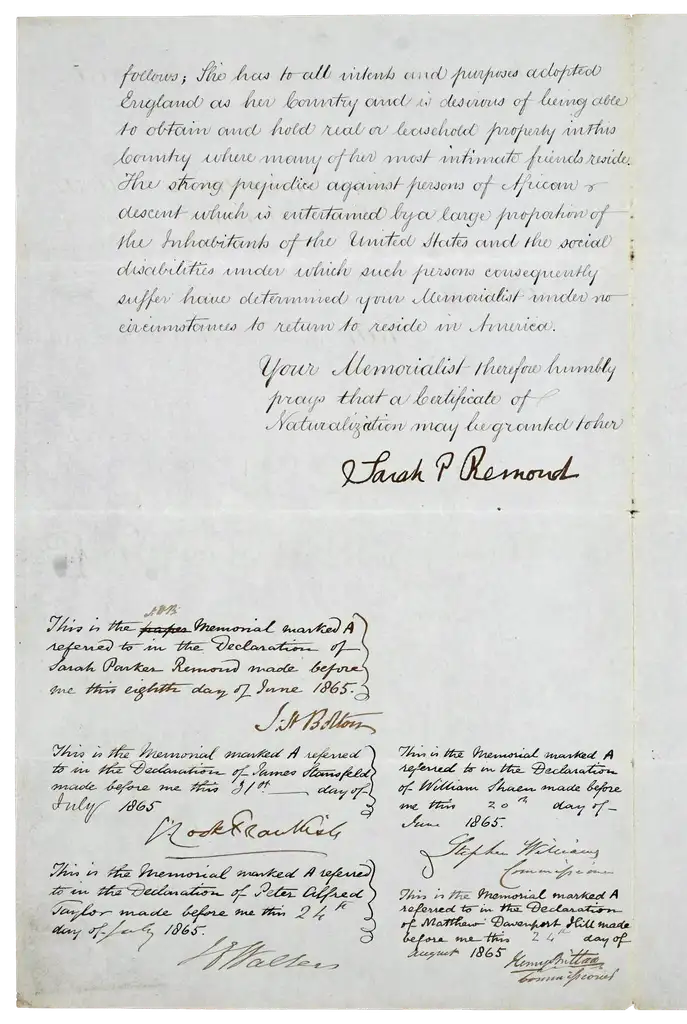 follows; She has to all intents and purposes adopted
England as her Country and is desirous of being able
to obtain and hold real or leasehold property in this
Country where many of her most intimate friends reside.
The strong prejudice against persons of African
descent which is entertained by a large proportion of
the Inhabitants of the United States and the social
disabilities under which such persons consequently
suffer have determined your Memorialist under no
circumstances to return to reside in America.
Your Memorialist therefore humbly
prays that a Certificate of
Naturalization may be granted to her
Sarah P Remond
This is the paper Memorial marked A
referred to in the Declaration of
Sarah Parker Remond made before
me this eighth day of June 1865.
This is the Memorial marked A referred
to in the Declaration of James Stansfeld
made before me this 31st day of
July 1865
This is the Memorial marked A referred
to in the Declaration of Peter Alfred
Taylor made before me this 24th
day of July 1865.
This is the Memorial marked A
referred to in the Declaration
of William Shaen made before
me this 20th day of
June 1865.
Stephen Williams
Commissioner
This is the Memorial marked A
referred to in the Declaration
of Matthew Davenport Hill made
before me this 24th day of
August 1865
Commissioner